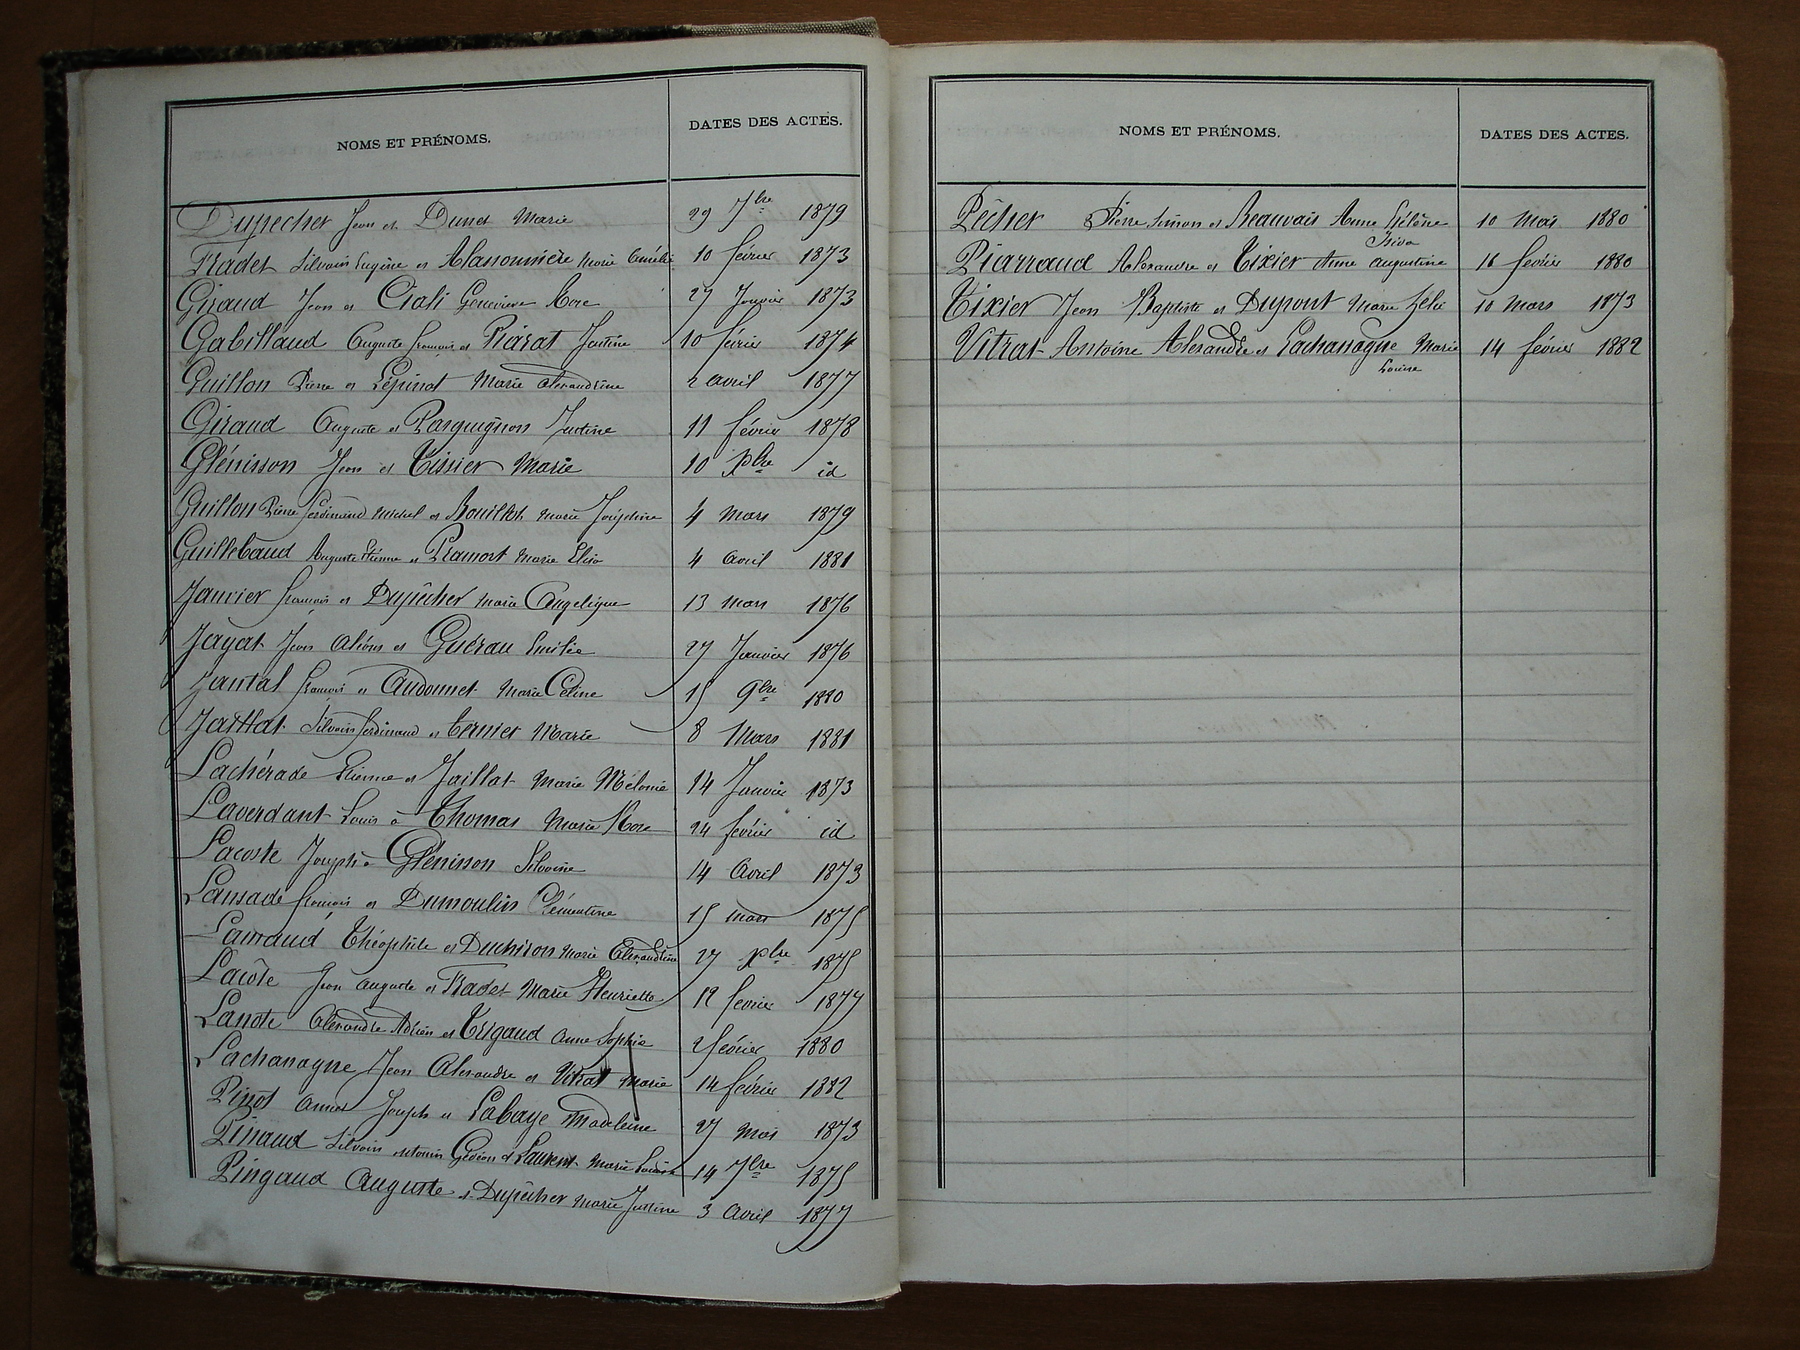 NOMS ET PRÉNOMS. DATES DES ACTES.
Dupecher Jean et Dunet Marie 29 7bre 1879
Fradet Silvain Eugène et Alanounière Marie Amélie 10 février 1873
Giraud Jean et Ciali Geneviève 27 Janvier 1873
Gabillaud Auguste françois et Piarat Justine 10 février 1874
Guillon Pierre et Lépinat Marie Alexandrine 2 avril 1877
Giraud Auguste et Pasquignon Justine 11 février 1878
Glénisson Jean et Tissier Marie 10 Xbre id
Guillon Pierre ferdinand Michel et Bouillot Marie Joséphine 4 mars 1879
Guillebaud Auguste Etienne et Pramort Marie Elisa 4 avril 1881
Janvier françois et Dupêcher Marie Angelique 13 mars 1876
Jayat Jean et Guérau Emilie 27 Janvier 1876
Jantal françois et Audonnet Marie Celine 15 9bre 1880
Jaillat Silvain ferdinand et Ternier Marie 8 Mars 1881
Lachérade Etienne et Jaillat Marie Mélanie 14 Janvier 1873
Laverdant Louis à Thomas Marie Rose 24 février id
Lacoste Joseph à Glénisson Silvaine 14 avril 1873
Lansade françois et Dumoulin Clémentine 15 mars 1875
Lamaud Théophile et Duchiron Marie Alexandrine 27 Xbre 1875
Lacôte Jean Auguste et Fradet Marie Henriette 12 fevrier 1877
Lanote Alexandre Adrien et Trigaud Anne Sophie 2 février 1880
Lachanagne Jean Alexandre et Vitrat Marie 14 février 1882
Pinot Annet Joseph et Labaye Madeleine 27 Mai 1873
Pinaud Silvain Antonin Gédéon et Laurent Marie Louise 14 7bre 1875
Pingaud Auguste et Dupêcher Marie Justine 3 avril 1877
NOMS ET PRÉNOMS. DATES DES ACTES.
Pêcher Pierre Simon et Beauvais Anne Hélène 10 mai 1880
Piarraud Alexandre et Tixier Anne Augustine 16 février 1880
Tixier Jean Baptiste et Dupont Marie Zelie 10 mars 1873
Vitrat Antoine Alexandre et Lachanagne Marie 14 février 1882
Louise